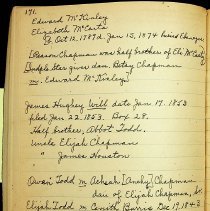 171.
Edward McKinley
Elizabeth McCarty
Oct 12, 1789 d. Jan 15, 1874
[Deason Chapman was half brother of Eliz McCarty
Dodge Star gives dau. Betsy Chapman
m. Edward McKinley]
James Hughey Will date Jan 17. 1853
filed Jan 22. 1853. Box 28.
Half brother, Abbot Todd.
uncle Elijah Chapman
" James Houston
Owen Todd m Achsah [Chapman
dau of Elijah Chapman,
Elijah Todd m Cenith Burris Dec 19, 1843